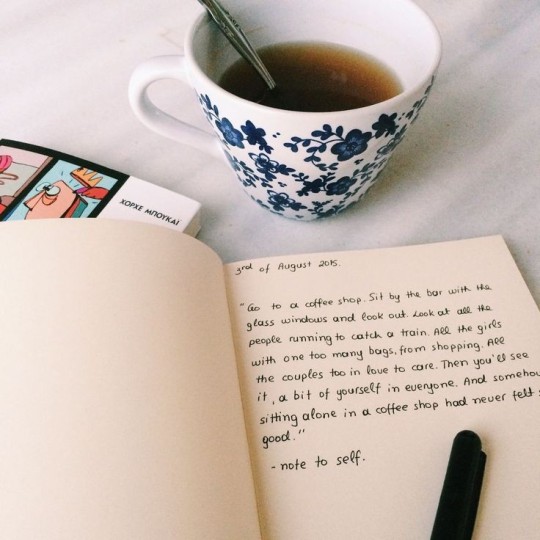 ΧΟΡΧΕ ΜΠΟΥΚΑΪ
3rd of August 2015.
"Go to a coffee shop. Sit by the bar with the
glass windows and look out. Look at all the
people running to catch a train. All the girls
with one too many bags, from shopping. All
the couples too in love to care. Then you'll see
it, a bit of yourself in everyone. And somehow
sitting alone in a coffee shop had never felt s
good."
- note to self.